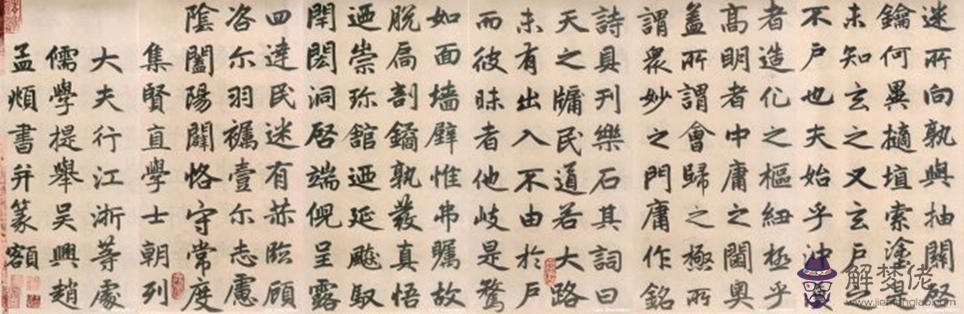 迷所向孰與抽關啓
鑰何異擿埴索塗是
未知玄之又玄戶之
不戶也夫始乎沖漠
者造化之樞紐極乎
高明者中庸之閫奧
蓋所謂會歸之極所
謂衆妙之門庸作銘
詩具刊樂石其詞曰
天之牖民道若大路
未有出入不由於戶
而彼昧者他岐是騖
如面墻壁惟弗矚故
脫扃剖鐍孰發真悟
迺崇珎館迺延飈馭
閈閎洞啓端倪呈露
四達民迷有赫臨顧
咨尔羽襵壹尔志慮
陰闔陽闢恪守常度
集賢直學士朝列
大夫行江浙等處
儒學提舉吳興趙
孟頫書并篆額
解梦佬